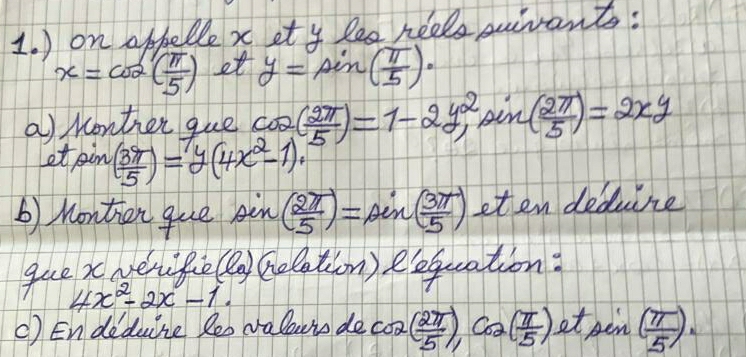 1.) on appelle x et y les réels suivants :
x = cos(π/5) et y = sin(π/5).
a) Montrer que cos(2π/5) = 1 - 2y², sin(2π/5) = 2xy
et sin(3π/5) = y(4x² - 1).
b) Montrer que sin(2π/5) = sin(3π/5) et en déduire
que x vérifie (la) (relation) l'équation :
4x² - 2x - 1.
c) En déduire les valeurs de cos(2π/5), cos(π/5) et sin(π/5).